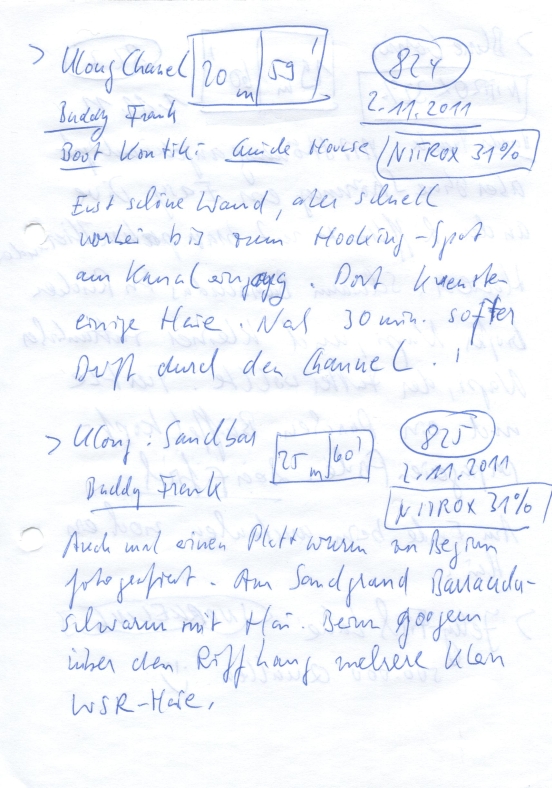 > Ulong Chanel 20 m 59' 824
Buddy Frank 2.11.2011
Boot Kontiki Guide House NITROX 31%
Erst schöne Wand, aber schnell
vorbei bis zum Hooking-Spot
am Kanaleingang. Dort kreusten
einige Haie. Nach 30 min. softer
Drift durch den Channel. !
> Ulong: Sandbar 25 m 60' 825
Buddy Frank 2.11.2011
NITROX 31%
Auch mal einen Plattwurm zu Beginn
fotografiert. Am Sandgrund Barracuda-
schwarm mit Hai. Beim
über den Riffhang mehrere
WSR-Haie.